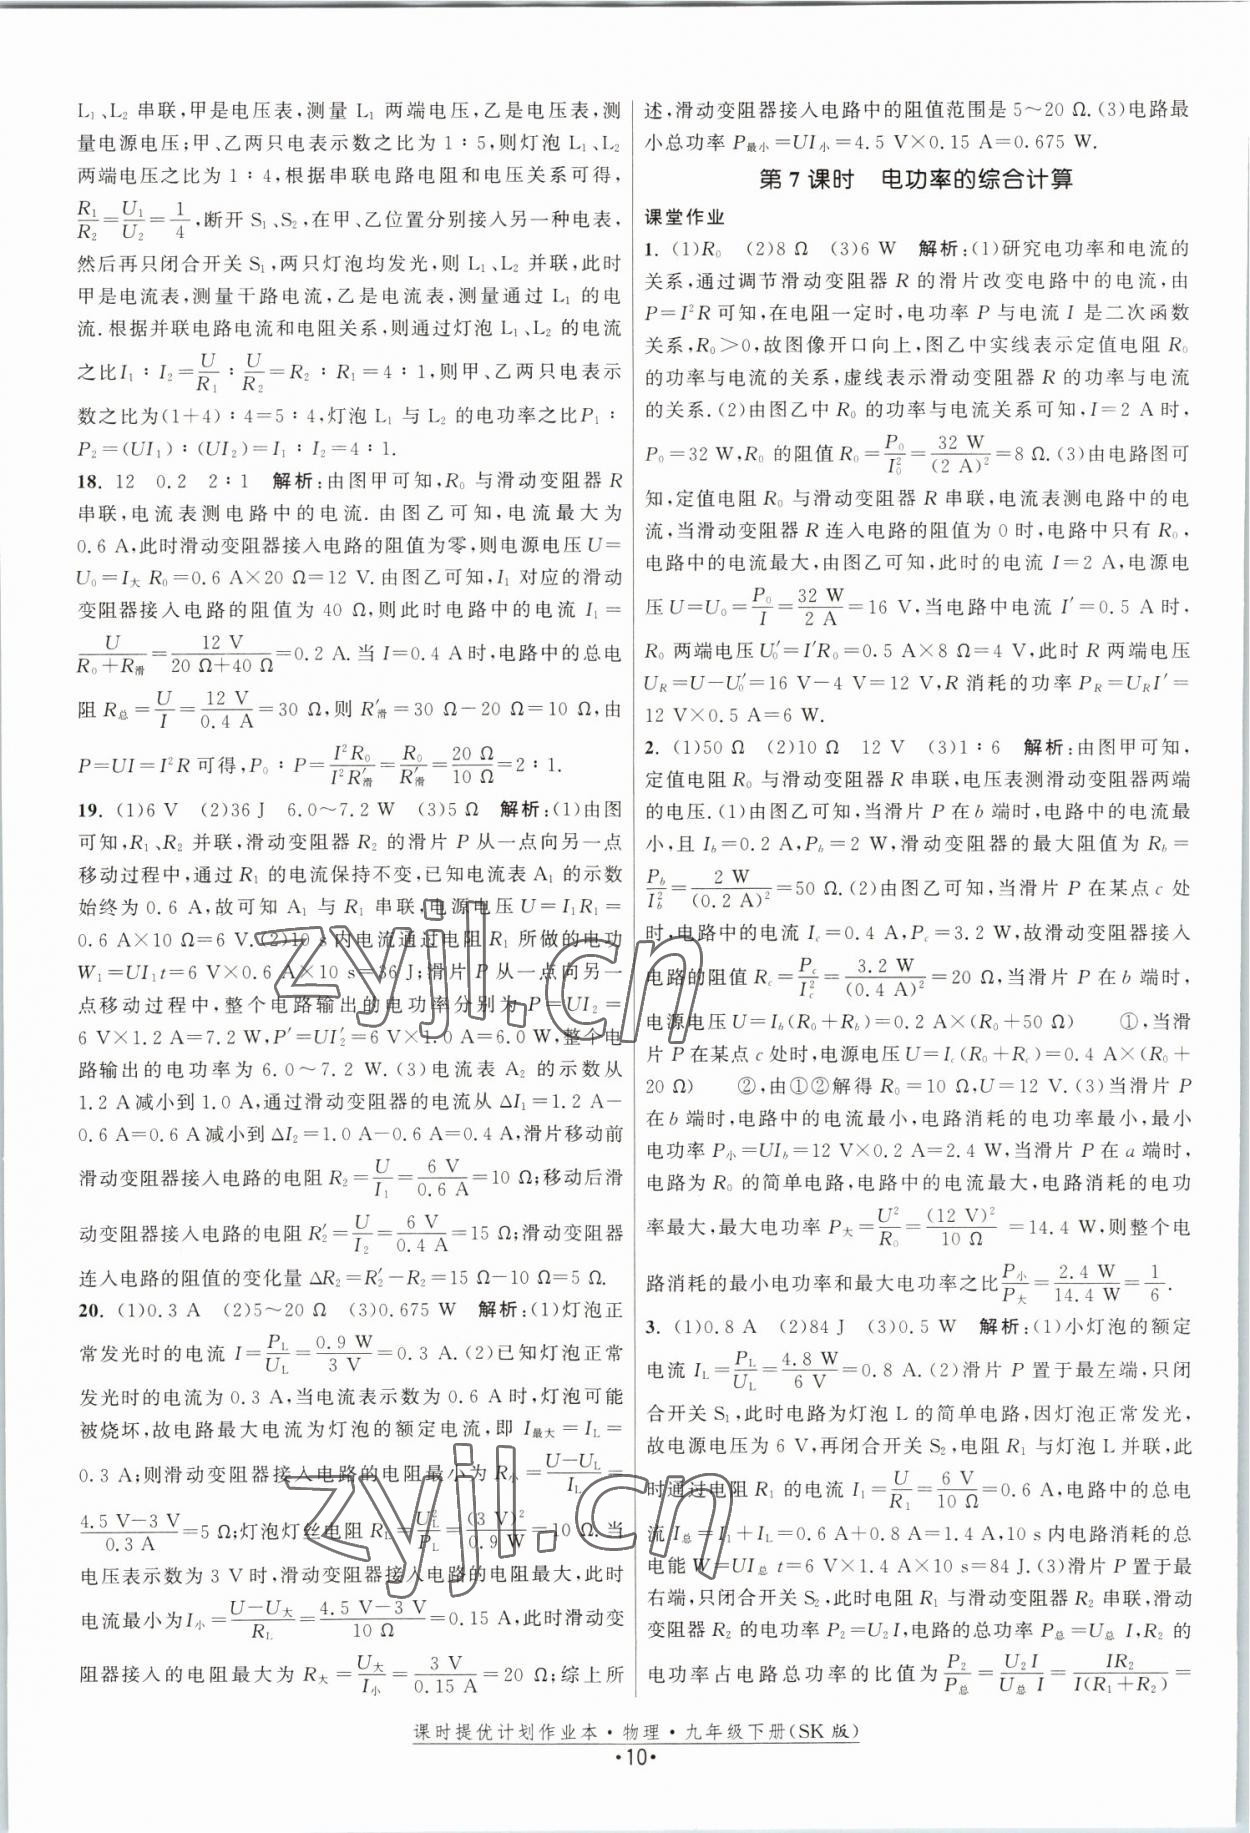 L₁、L₂ 串联,甲是电压表,测量 L₁ 两端电压,乙是电压表,测
量电源电压;甲、乙两只电表示数之比为 1∶5,则灯泡 L₁、L₂
两端电压之比为 1∶4,根据串联电路电阻和电压关系可得,
R₁/R₂=U₁/U₂=1/4,断开 S₁、S₂,在甲、乙位置分别接入另一种电表,
然后再只闭合开关 S₁,两只灯泡均发光,则 L₁、L₂ 并联,此时
甲是电流表,测量干路电流,乙是电流表,测量通过 L₁ 的电
流.根据并联电路电流和电阻关系,则通过灯泡 L₁、L₂ 的电流
之比I₁∶I₂=U/R₁∶U/R₂=R₂∶R₁=4∶1,则甲、乙两只电表示
数之比为(1+4)∶4=5∶4,灯泡 L₁ 与 L₂ 的电功率之比P₁∶
P₂=(UI₁)∶(UI₂)=I₁∶I₂=4∶1.
18. 12 0.2 2∶1 解析:由图甲可知,R₀ 与滑动变阻器 R
串联,电流表测电路中的电流.由图乙可知,电流最大为
0.6 A,此时滑动变阻器接入电路的阻值为零,则电源电压 U=
U₀=I大 R₀=0.6 A×20 Ω=12 V.由图乙可知,I₁ 对应的滑动
变阻器接入电路的阻值为 40 Ω,则此时电路中的电流 I₁=
U/(R₀+R滑)=12 V/(20 Ω+40 Ω)=0.2 A.当 I=0.4 A时,电路中的总电
阻 R总=U/I=12 V/0.4 A=30 Ω,则 R′滑=30 Ω-20 Ω=10 Ω,由
P=UI=I²R 可得,P₀∶P=I²R₀/I²R′滑=R₀/R′滑=20 Ω/10 Ω=2∶1.
19. (1)6 V (2)36 J 6.0~7.2 W (3)5 Ω 解析:(1)由图
可知,R₁、R₂ 并联,滑动变阻器 R₂ 的滑片 P 从一点向另一点
移动过程中,通过 R₁ 的电流保持不变,已知电流表 A₁ 的示数
始终为 0.6 A,故可知 A₁ 与 R₁ 串联,电源电压 U=I₁R₁=
0.6 A×10 Ω=6 V.(2)10 s内电流通过电阻 R₁ 所做的电功
W₁=UI₁t=6 V×0.6 A×10 s=36 J;滑片 P 从一点向另一
点移动过程中,整个电路输出的电功率分别为 P=UI₂=
6 V×1.2 A=7.2 W,P′=UI₂′=6 V×1.0 A=6.0 W,整个电
路输出的电功率为 6.0~7.2 W.(3)电流表 A₂ 的示数从
1.2 A减小到 1.0 A,通过滑动变阻器的电流从 ΔI₁=1.2 A-
0.6 A=0.6 A减小到 ΔI₂=1.0 A-0.6 A=0.4 A,滑片移动前
滑动变阻器接入电路的电阻 R₂=U/I₁=6 V/0.6 A=10 Ω;移动后滑
动变阻器接入电路的电阻 R₂′=U/I₂=6 V/0.4 A=15 Ω;滑动变阻器
连入电路的阻值的变化量 ΔR₂=R₂′-R₂=15 Ω-10 Ω=5 Ω.
20. (1)0.3 A (2)5~20 Ω (3)0.675 W 解析:(1)灯泡正
常发光时的电流 I=P_L/U_L=0.9 W/3 V=0.3 A.(2)已知灯泡正常
发光时的电流为 0.3 A,当电流表示数为 0.6 A时,灯泡可能
被烧坏,故电路最大电流为灯泡的额定电流,即 I最大=I_L=
0.3 A;则滑动变阻器接入电路的电阻最小为 R小=(U-U_L)/I_L=
(4.5 V-3 V)/0.3 A=5 Ω;灯泡灯丝电阻 R_L=U_L²/P_L=(3 V)²/0.9 W=10 Ω.当
电压表示数为 3 V时,滑动变阻器接入电路的电阻最大,此时
电流最小为I小=(U-U大)/R_L=(4.5 V-3 V)/10 Ω=0.15 A,此时滑动变
阻器接入的电阻最大为 R大=U大/I小=3 V/0.15 A=20 Ω;综上所
述,滑动变阻器接入电路中的阻值范围是 5~20 Ω.(3)电路最
小总功率 P最小=UI小=4.5 V×0.15 A=0.675 W.
第 7 课时 电功率的综合计算
课堂作业
1. (1)R₀ (2)8 Ω (3)6 W 解析:(1)研究电功率和电流的
关系,通过调节滑动变阻器 R 的滑片改变电路中的电流,由
P=I²R 可知,在电阻一定时,电功率 P 与电流 I 是二次函数
关系,R₀>0,故图像开口向上,图乙中实线表示定值电阻 R₀
的功率与电流的关系,虚线表示滑动变阻器 R 的功率与电流
的关系.(2)由图乙中 R₀ 的功率与电流关系可知,I=2 A时,
P₀=32 W,R₀ 的阻值 R₀=P₀/I₀²=32 W/(2 A)²=8 Ω.(3)由电路图可
知,定值电阻 R₀ 与滑动变阻器 R 串联,电流表测电路中的电
流,当滑动变阻器 R 连入电路的阻值为 0 时,电路中只有 R₀,
电路中的电流最大,由图乙可知,此时的电流 I=2 A,电源电
压U=U₀=P₀/I=32 W/2 A=16 V,当电路中电流 I′=0.5 A时,
R₀ 两端电压U₀′=I′R₀=0.5 A×8 Ω=4 V,此时 R 两端电压
U_R=U-U₀′=16 V-4 V=12 V,R 消耗的功率 P_R=U_RI′=
12 V×0.5 A=6 W.
2. (1)50 Ω (2)10 Ω 12 V (3)1∶6 解析:由图甲可知,
定值电阻 R₀ 与滑动变阻器 R 串联,电压表测滑动变阻器两端
的电压.(1)由图乙可知,当滑片 P 在 b 端时,电路中的电流最
小,且 I_b=0.2 A,P_b=2 W,滑动变阻器的最大阻值为 R_b=
P_b/I_b²=2 W/(0.2 A)²=50 Ω.(2)由图乙可知,当滑片 P 在某点 c 处
时,电路中的电流 I_c=0.4 A,P_c=3.2 W,故滑动变阻器接入
电路的阻值 R_c=P_c/I_c²=3.2 W/(0.4 A)²=20 Ω,当滑片 P 在 b 端时,
电源电压 U=I_b(R₀+R_b)=0.2 A×(R₀+50 Ω) ①,当滑
片 P 在某点 c 处时,电源电压 U=I_c(R₀+R_c)=0.4 A×(R₀+
20 Ω) ②,由①②解得 R₀=10 Ω,U=12 V.(3)当滑片 P
在 b 端时,电路中的电流最小,电路消耗的电功率最小,最小
电功率 P小=UI_b=12 V×0.2 A=2.4 W,当滑片 P 在 a 端时,
电路为 R₀ 的简单电路,电路中的电流最大,电路消耗的电功
率最大,最大电功率 P大=U²/R₀=(12 V)²/10 Ω=14.4 W,则整个电
路消耗的最小电功率和最大电功率之比P小/P大=2.4 W/14.4 W=1/6.
3. (1)0.8 A (2)84 J (3)0.5 W 解析:(1)小灯泡的额定
电流 I_L=P_L/U_L=4.8 W/6 V=0.8 A.(2)滑片 P 置于最左端,只闭
合开关 S₁,此时电路为灯泡 L 的简单电路,因灯泡正常发光,
故电源电压为 6 V,再闭合开关 S₂,电阻 R₁ 与灯泡 L 并联,此
时通过电阻 R₁ 的电流 I₁=U/R₁=6 V/10 Ω=0.6 A,电路中的总电
流 I总=I₁+I_L=0.6 A+0.8 A=1.4 A,10 s内电路消耗的总
电能 W=UI总 t=6 V×1.4 A×10 s=84 J.(3)滑片 P 置于最
右端,只闭合开关 S₂,此时电阻 R₁ 与滑动变阻器 R₂ 串联,滑动
变阻器 R₂ 的电功率 P₂=U₂I,电路的总功率 P总=U总 I,R₂ 的
电功率占电路总功率的比值为P₂/P总=U₂I/U总 I=IR₂/I(R₁+R₂)=
课时提优计划作业本·物理·九年级下册(SK版)
·10·
zyjl.cn
zyjl.cn